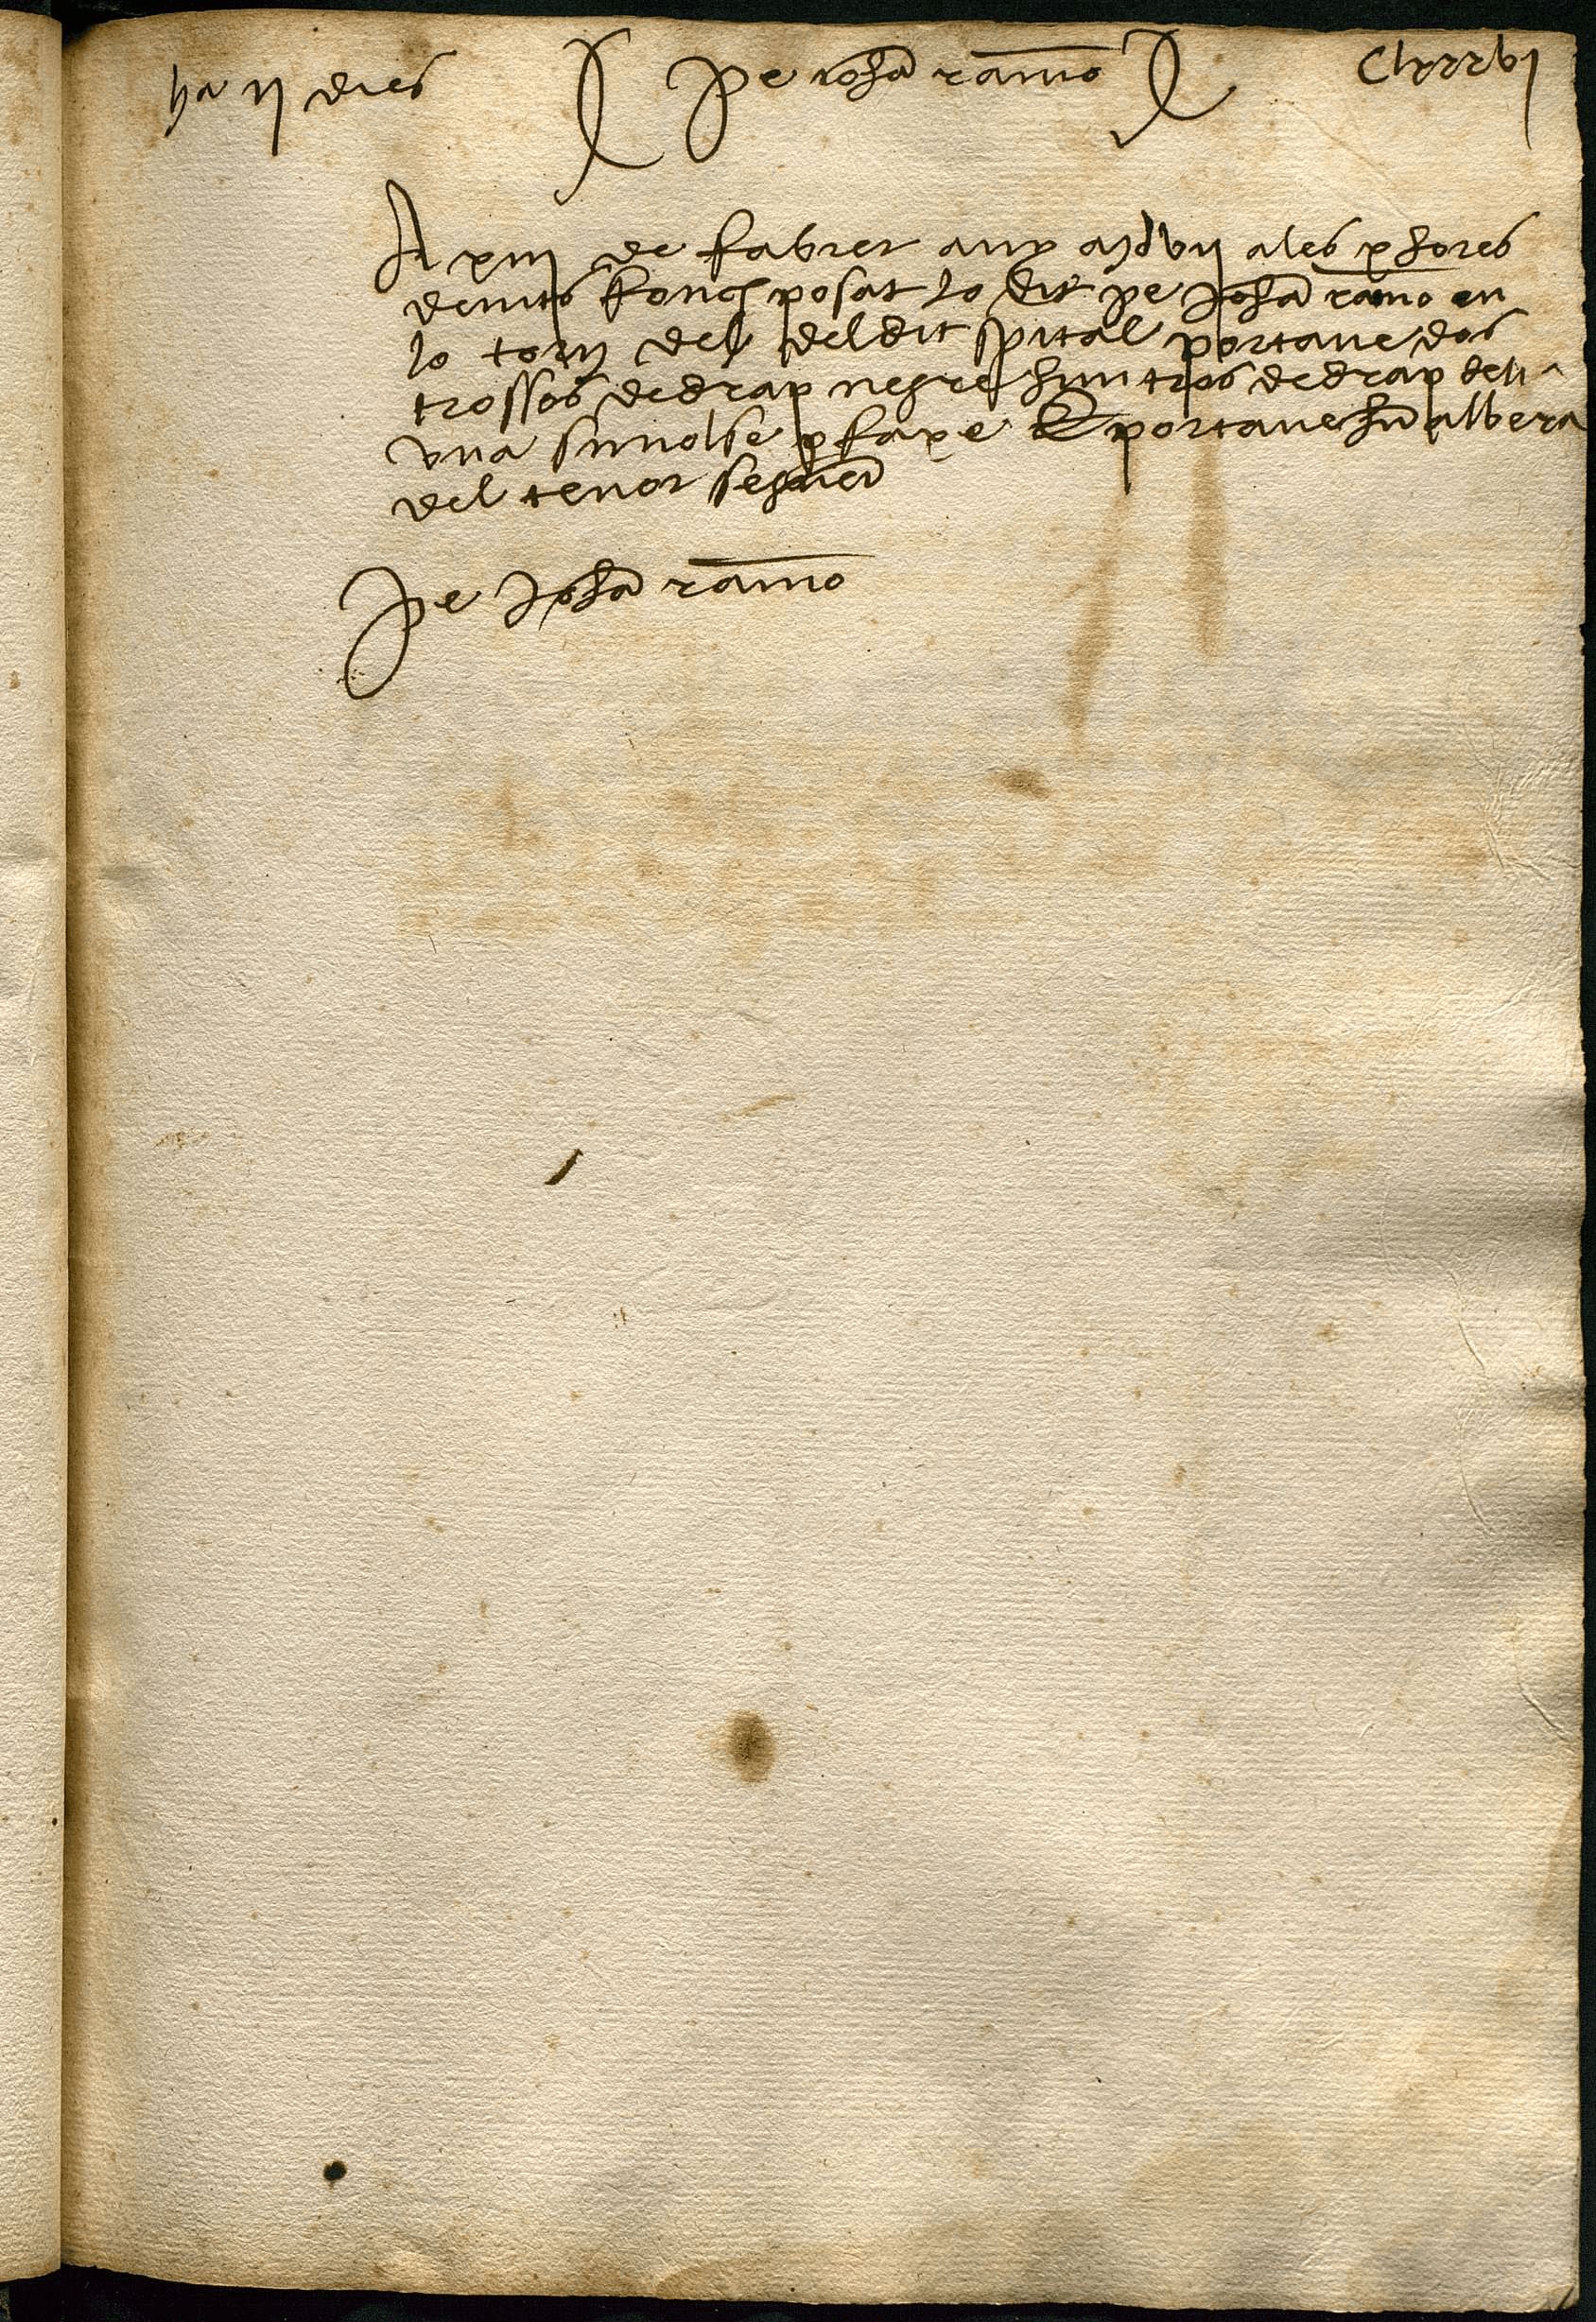 ha ij dies
Pe johā ramō
Clxxxvj
A xiij de fabrer any mdvij a les x hores
de nits fonch posat lo dit pe johā ramō en
lo torn del deldit spital portave dos
trossos de drap negre hun tros de drap de li
vna sinolse p faxe E portave hū albera
del tenor seguēt
Pe Johā ramō